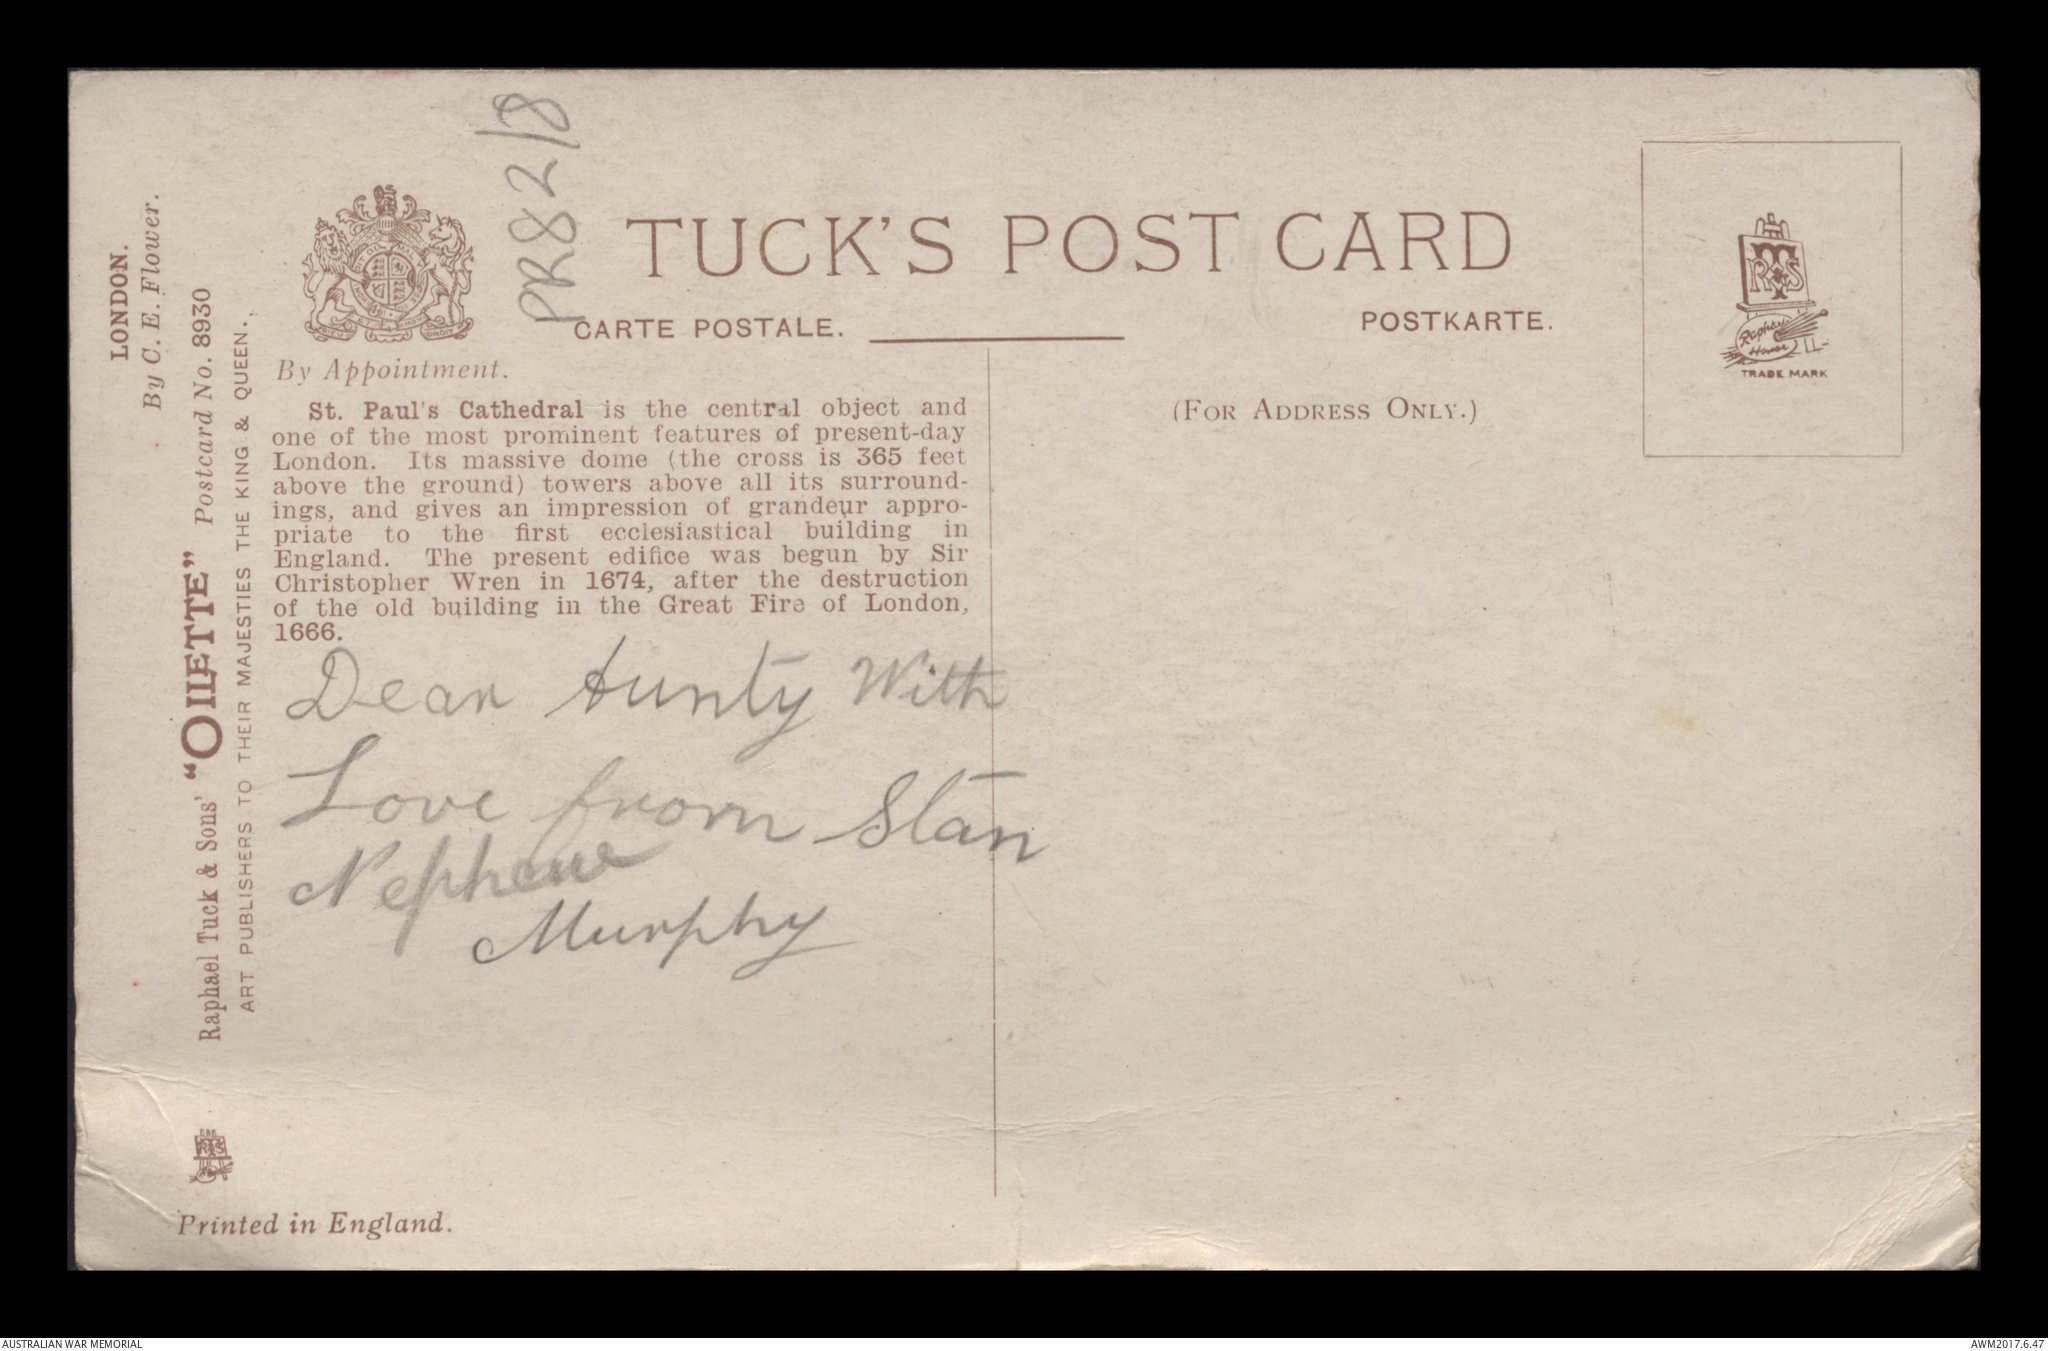 LONDON.
By C. E. Flower.
Raphael Tuck & Sons' "OILETTE" Postcard No. 8930
ART PUBLISHERS TO THEIR MAJESTIES THE KING & QUEEN.
PR82/8
TUCK'S POST CARD
CARTE POSTALE.
POSTKARTE.
By Appointment.
(FOR ADDRESS ONLY.)
RTS
Raphael
House
TRADE MARK
St. Paul's Cathedral is the central object and
one of the most prominent features of present-day
London. Its massive dome (the cross is 365 feet
above the ground) towers above all its surround-
ings, and gives an impression of grandeur appro-
priate to the first ecclesiastical building in
England. The present edifice was begun by Sir
Christopher Wren in 1674, after the destruction
of the old building in the Great Fire of London,
1666.
Dear Aunty With
Love from Stan
Nephew
Murphy
RTS
Printed in England.
AUSTRALIAN WAR MEMORIAL
AWM2017.6.47